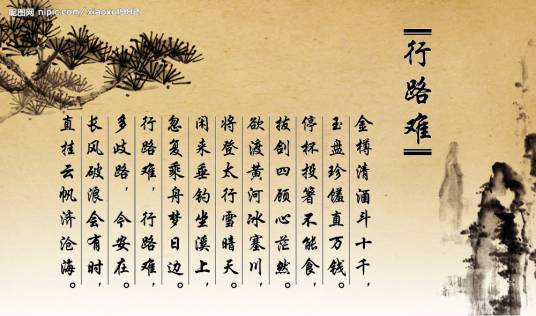 昵图网 nipic.com/xiaoxu1982
行路难
金樽清酒斗十千，
玉盘珍馐直万钱。
停杯投箸不能食，
拔剑四顾心茫然。
欲渡黄河冰塞川，
将登太行雪暗天。
闲来垂钓坐溪上，
忽复乘舟梦日边。
行路难，行路难，
多歧路，今安在。
长风破浪会有时，
直挂云帆济沧海。